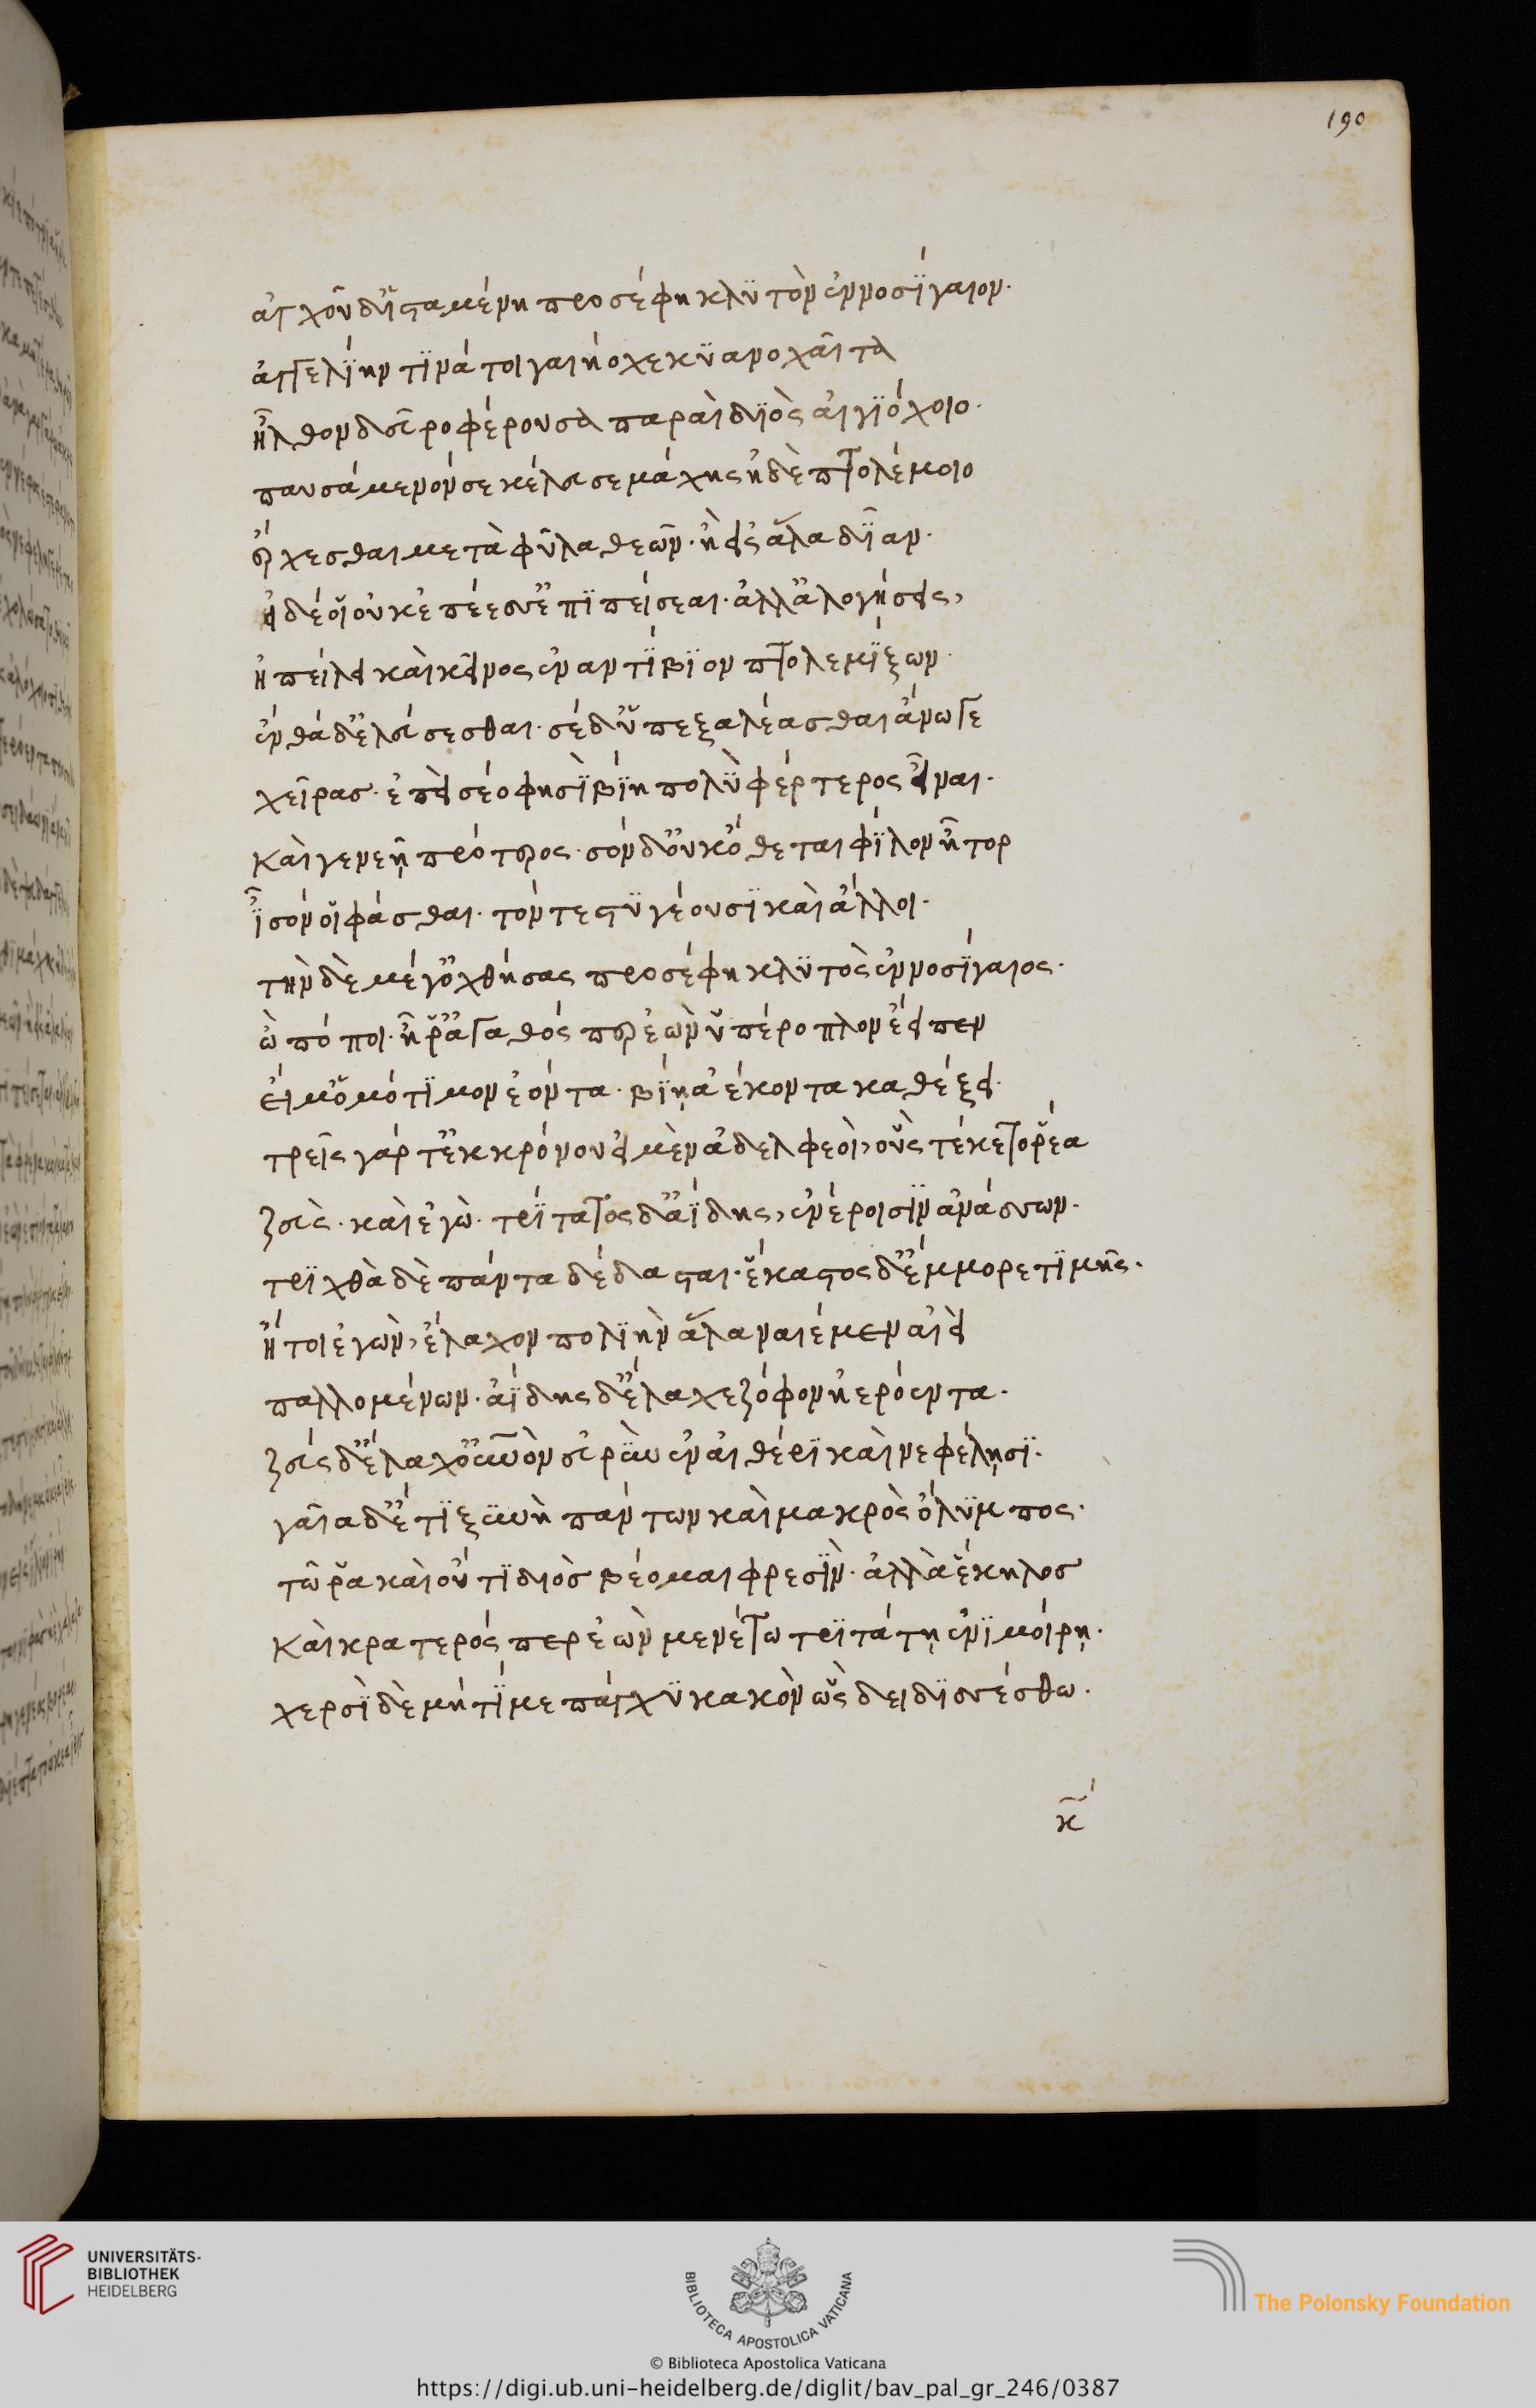 190
ἀγχοῦ δ' ἱσταμένη προσέφη κλυτὸν ἐννοσίγαιον·
ἀγγελίην τινά τοι γαιήοχε κυανοχαῖτα
ἦλθον δεῦρο φέρουσα παραὶ διὸς αἰγιόχοιο·
παυσάμενόν σε κέλευσε μάχης ἠδὲ πτολέμοιο
ἔρχεσθαι μετὰ φῦλα θεῶν· ἢ εἰς ἅλα δῖαν·
εἰ δέ οἱ οὐκ ἐπέεσσ' ἐπιπείσεαι· ἀλλ' ἀλογήσεις,
ἠπείλει καὶ κεῖνος ἐναντίβιον πτολεμίξων·
ἐνθάδ' ἐλεύσεσθαι· σὲ δ' ὑπεξαλέασθαι ἄνωγε
χεῖρας· ἐπεὶ σέο φησὶ βίῃ πολὺ φέρτερος εἶναι·
καὶ γενεῇ πρότερος· σὸν δ' οὐκ ὄθεται φίλον ἦτορ
ἶσόν οἱ φάσθαι· τόν τε στυγέουσι καὶ ἄλλοι·
τὴν δὲ μέγ' ὀχθήσας προσέφη κλυτὸς ἐννοσίγαιος·
ὢ πόποι· ἦ ῥ' ἀγαθός περ ἐὼν ὑπέροπλον ἔειπεν
εἴ μ' ὁμότιμον ἐόντα· βίῃ ἀέκοντα καθέξει·
τρεῖς γάρ τ' ἐκ κρόνου εἰμὲν ἀδελφεοὶ, οὓς τέκετο ῥέα
ζεὺς· καὶ ἐγὼ· τρίτατος δ' ἀΐδης, ἐνέροισιν ἀνάσσων·
τριχθὰ δὲ πάντα δέδασται· ἕκαστος δ' ἔμμορε τιμῆς·
ἤτοι ἐγὼν, ἔλαχον πολιὴν ἅλα ναιέμεν αἰεὶ
παλλομένων· ἀΐδης δ' ἔλαχε ζόφον ἠερόεντα·
ζεὺς δ' ἔλαχ' οὐρανὸν εὐρὺν ἐν αἰθέρι καὶ νεφέλῃσι·
γαῖα δ' ἔτι ξυνὴ πάντων καὶ μακρὸς ὄλυμπος·
τῶ ῥα καὶ οὔ τι διὸς βέομαι φρεσὶν· ἀλλὰ ἕκηλος
καὶ κρατερός περ ἐὼν μενέτω τριτάτῃ ἐνὶ μοίρῃ·
χερσὶ δὲ μή τί με πάγχυ κακὸν ὣς δειδισσέσθω·
κ
UNIVERSITÄTS-
BIBLIOTHEK
HEIDELBERG
BIBLIOTECA APOSTOLICA VATICANA
The Polonsky Foundation
© Biblioteca Apostolica Vaticana
https://digi.ub.uni-heidelberg.de/diglit/bav_pal_gr_246/0387